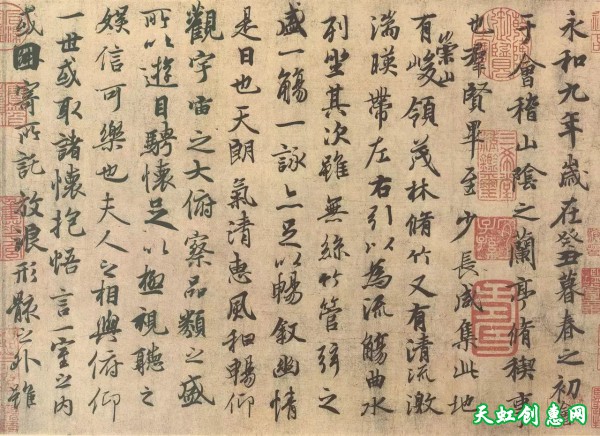 永和九年歲在癸丑暮春之初會
于會稽山陰之蘭亭脩稧事
也羣賢畢至少長咸集此地
有崇山峻領茂林脩竹又有清流激
湍暎帶左右引以為流觴曲水
列坐其次雖無絲竹管弦之
盛一觴一詠亦足以暢敘幽情
是日也天朗氣清惠風和暢仰
觀宇宙之大俯察品類之盛
所以遊目騁懷足以極視聽之
娛信可樂也夫人之相與俯仰
一世或取諸懷抱悟言一室之內
或因寄所託放浪形骸之外雖
天虹创意网